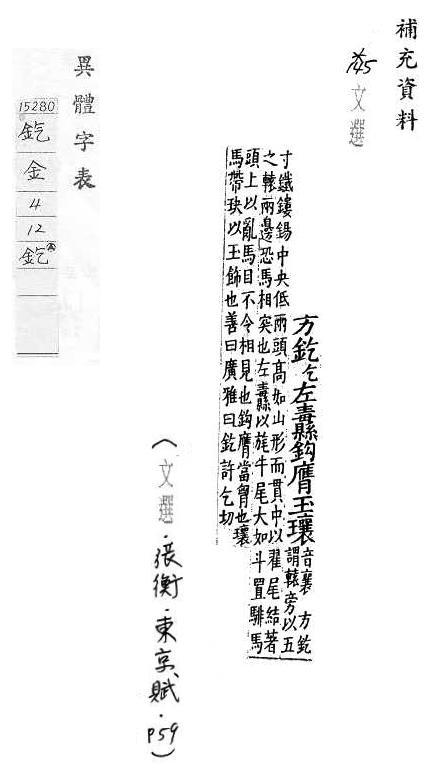 補充資料
文選
方釳乞左纛縣鈎膺玉瓖音襄 方釳謂轅旁以五
寸鐵鏤鍚中央低兩頭髙如山形而貫中以翟尾結著
之轅兩邊恐馬相突也左纛縣以旄牛尾大如斗置騑馬
頭上以亂馬目不令相見也鈎膺當胷也瓖
馬帶玦以玉飾也善曰廣雅曰釳許乞切
(文選.張衡.東京賦.P59)
異體字表
15280
釳
金
4
12
釳